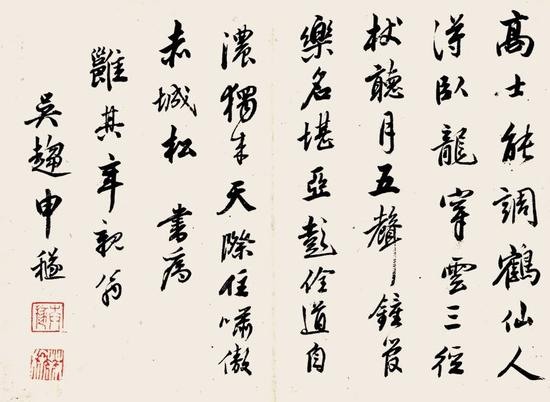 高士能調鶴仙人
得臥龍穿雲三徑
杖聽月五聲鐘管
樂名堪亞彭佺道自
濃獨來天際住嘯傲
赤城松 書為
其年親翁
吳趨申